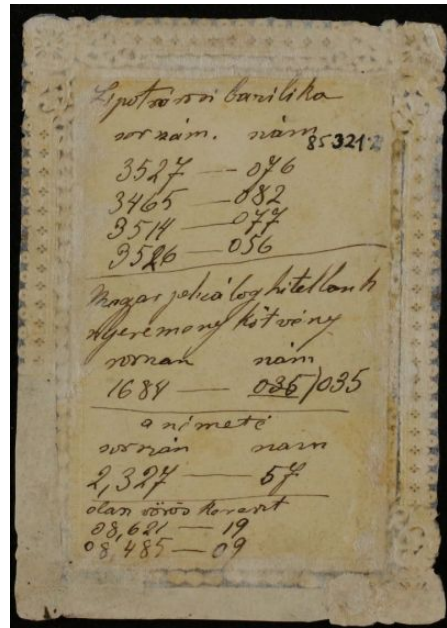 Lipotvárosi bazilika
sorszám. szám
85321.2
3527 — 076
3465 — 082
3514 — 077
3526 — 056
Magar jelzálog hitelbank
nyeremeny kötvény
sorszan szám
1684 — 035)035
a németé
sorszán szam
2,327 — 57
olan vörös kereszt
08,621 — 19
08,485 — 09